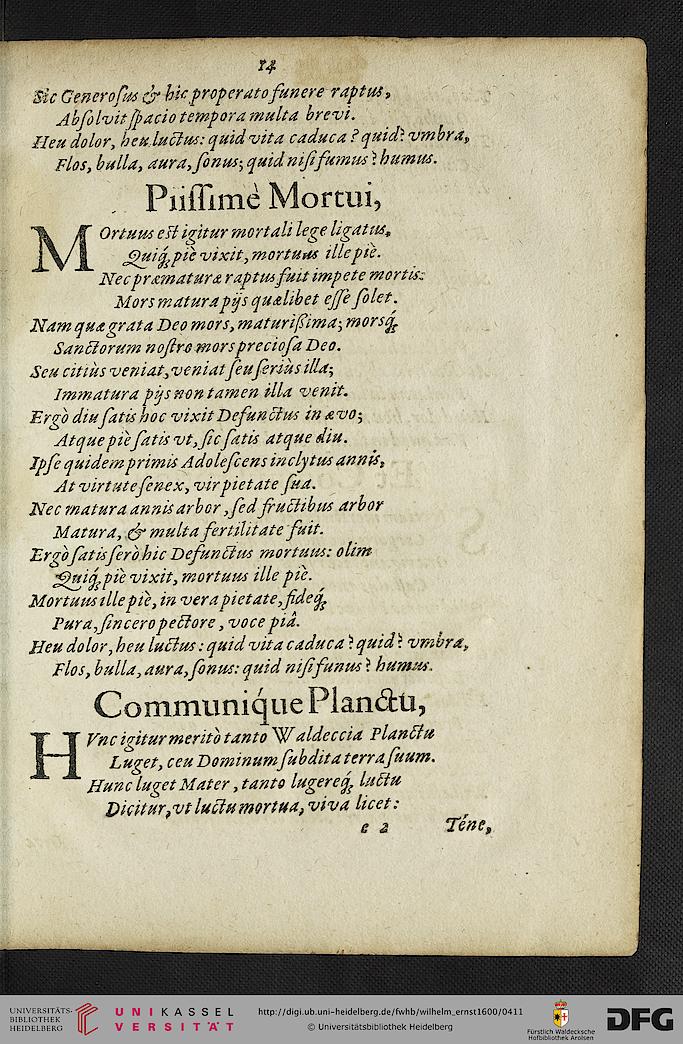 14
Sic Generoſus & hic properato funere raptus,
Abſolvit ſpacio tempora multa brevi.
Heu dolor, heu luctus: quid vita caduca? quid? vmbra,
Flos, bulla, aura, ſonus; quid niſi fumus? humus.
Piiſſimè Mortui,
MOrtuus eſt igitur mortali lege ligatus,
Quiq́; piè vixit, mortuus ille piè.
Nec præmaturæ raptus fuit impete mortis:
Mors matura pijs quælibet eſſe ſolet.
Nam quæ grata Deo mors, maturißima; morsq́;
Sanctorum noſtro mors precioſa Deo.
Seu citiùs veniat, veniat ſeu ſeriùs illa;
Immatura pijs non tamen illa venit.
Ergò diu ſatis hoc vixit Defunctus in ævo;
Atque piè ſatis vt, ſic ſatis atque diu.
Ipſe quidem primis Adoleſcens inclytus annis,
At virtute ſenex, vir pietate ſua.
Nec matura annis arbor, ſed fructibus arbor
Matura, & multa fertilitate fuit.
Ergò ſatis ſerò hic Defunctus mortuus: olim
Quiq́; piè vixit, mortuus ille piè.
Mortuus ille piè, in vera pietate, fideq́;
Pura, ſincero pectore, voce piâ.
Heu dolor, heu luctus: quid vita caduca? quid? vmbra,
Flos, bulla, aura, ſonus: quid niſi funus? humus.
Communiq́ue Planctu,
HVnc igitur meritò tanto Waldeccia Planctu
Luget, ceu Dominum ſubdita terra ſuum.
Hunc luget Mater, tanto lugereq́; luctu
Dicitur, vt luctu mortua, viva licet:
e 2 Téne,
UNIVERSITÄTS-
BIBLIOTHEK
HEIDELBERG
UNIKASSEL
VERSITÄT
http://digi.ub.uni-heidelberg.de/fwhb/wilhelm_ernst1600/0411
© Universitätsbibliothek Heidelberg
Fürstlich Waldecksche
Hofbibliothek Arolsen
DFG